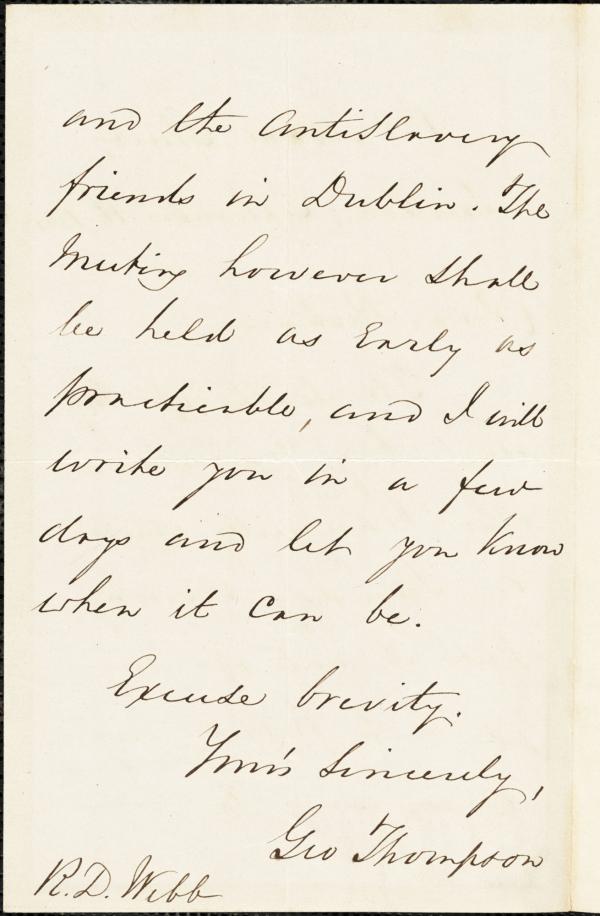 and the Antislavery
friends in Dublin. The
Meeting however shall
be held as Early as
practicable, and I will
write you in a few
days and let you know
when it can be.
Excuse brevity.
Your's Sincerely,
Geo Thompson
R. D. Webb